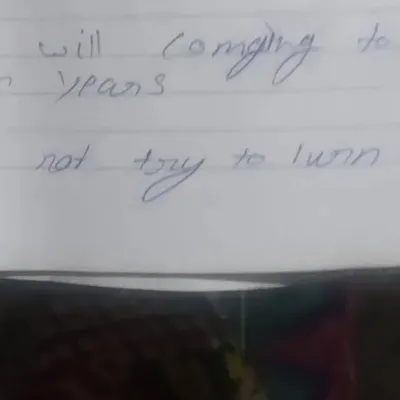 will comging to
years
not try to lurn